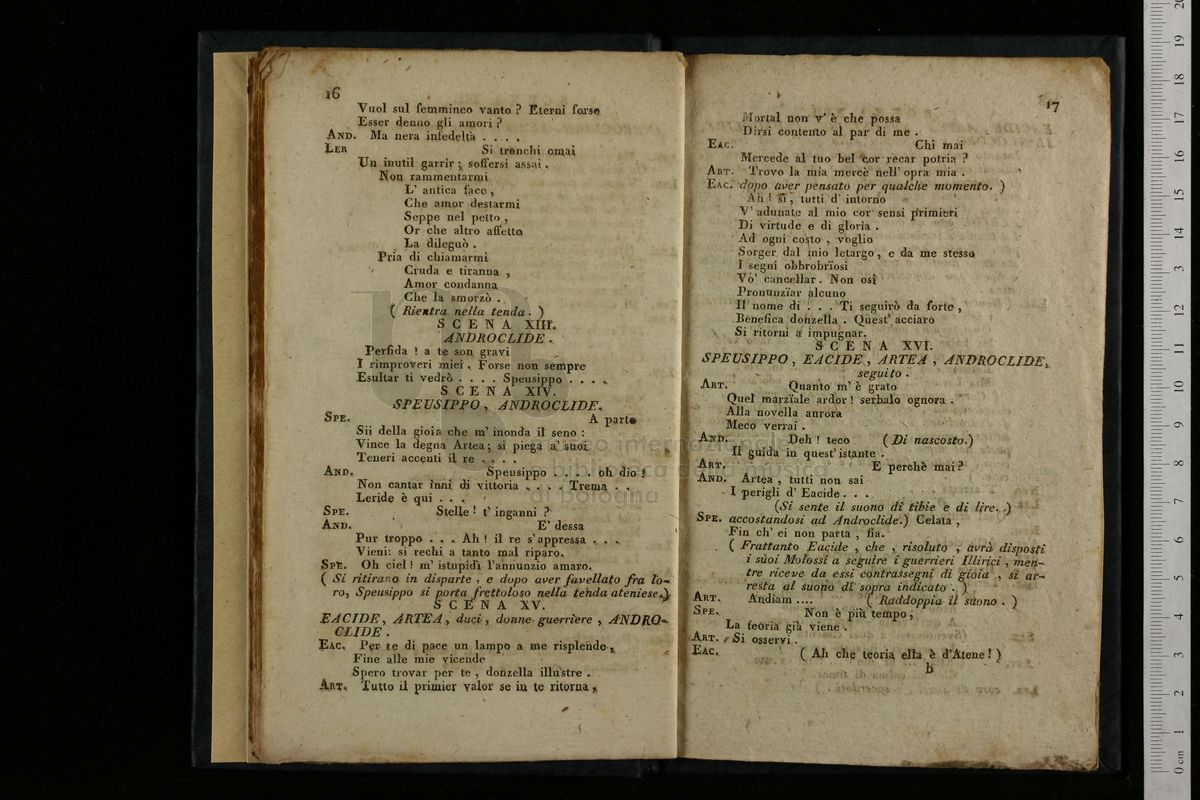 16
Vuol sul femmineo vanto ? Eterni forse
Esser denno gli amori ?
AND. Ma nera infedeltà . . . .
LER Si tronchi omai
Un inutil garrir ; soffersi assai .
Non rammentarmi
L' antica face ,
Che amor destarmi
Seppe nel petto ,
Or che altro affetto
La dileguò .
Pria di chiamarmi
Cruda e tiranna ,
Amor condanna
Che la smorzò .
( Rientra nella tenda . )
SCENA XIII.
ANDROCLIDE .
Perfida ! a te son gravi
I rimproveri miei . Forse non sempre
Esultar ti vedrò . . . . Speusippo . . . .
SCENA XIV.
SPEUSIPPO , ANDROCLIDE .
SPE. A parte
Sii della gioia che m' inonda il seno :
Vince la degna Artea ; si piega a' suoi
Teneri accenti il re . . . .
AND. Speusippo . . . . oh dio !
Non cantar inni di vittoria . . . . Trema . .
Leride è qui . . .
SPE. Stelle ! t' inganni ?
AND. E' dessa
Pur troppo . . . Ah ! il re s'appressa . . .
Vieni: si rechi a tanto mal riparo.
SPE. Oh ciel ! m' istupidì l'annunzio amaro.
( Si ritirano in disparte , e dopo aver favellato fra lo-
ro, Speusippo si porta frettoloso nella tenda ateniese.)
SCENA XV.
EACIDE, ARTEA, duci, donne guerriere , ANDRO-
CLIDE .
EAC. Per te di pace un lampo a me risplende,
Fine alle mie vicende
Spero trovar per te , donzella illustre .
ART. Tutto il primier valor se in te ritorna,
17
Mortal non v' è che possa
Dirsi contento al par di me .
EAC. Chi mai
Mercede al tuo bel cor recar potria ?
ART. Trovo la mia mercè nell' opra mia .
EAC. dopo aver pensato per qualche momento. )
Ah ! sì , tutti d' intorno
V' adunate al mio cor sensi primieri
Di virtude e di gloria .
Ad ogni costo , voglio
Sorger dal mio letargo, e da me stesso
I segni obbrobrïosi
Vo' cancellar. Non osi
Pronunzïar alcuno
Il nome di . . . Ti seguirò da forte ,
Benefica donzella . Quest' acciaro
Si ritorni a impugnar.
SCENA XVI.
SPEUSIPPO , EACIDE , ARTEA , ANDROCLIDE,
seguito .
ART. Quanto m' è grato
Quel marzïale ardor ! serbalo ognora .
Alla novella aurora
Meco verrai .
AND. Deh ! teco ( Di nascosto.)
Il guida in quest' istante .
ART. E perchè mai ?
AND. Artea , tutti non sai
I perigli d' Eacide . . .
(Si sente il suono di tibie e di lire. )
SPE. accostandosi ad Androclide.) Celata ,
Fin ch' ei non parta , fia.
( Frattanto Eacide , che , risoluto , avrà disposti
i suoi Molossi a seguire i guerrieri Illirici , men-
tre riceve da essi contrassegni di gioia , si ar-
resta al suono di sopra indicato . )
ART. Andiam .... ( Raddoppia il suono . )
SPE. Non è più tempo ;
La teoria già viene .
ART. Si osservi .
EAC. ( Ah che teoria ella è d'Atene ! )
b
museo internazionale
e biblioteca della musica
di bologna
0 cm 1 2 3 4 5 6 7 8 9 10 11 12 13 14 15 16 17 18 19 20